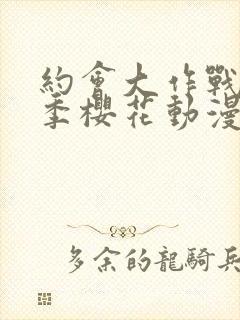 約會大作戰
季櫻花動漫
多余的龍騎兵